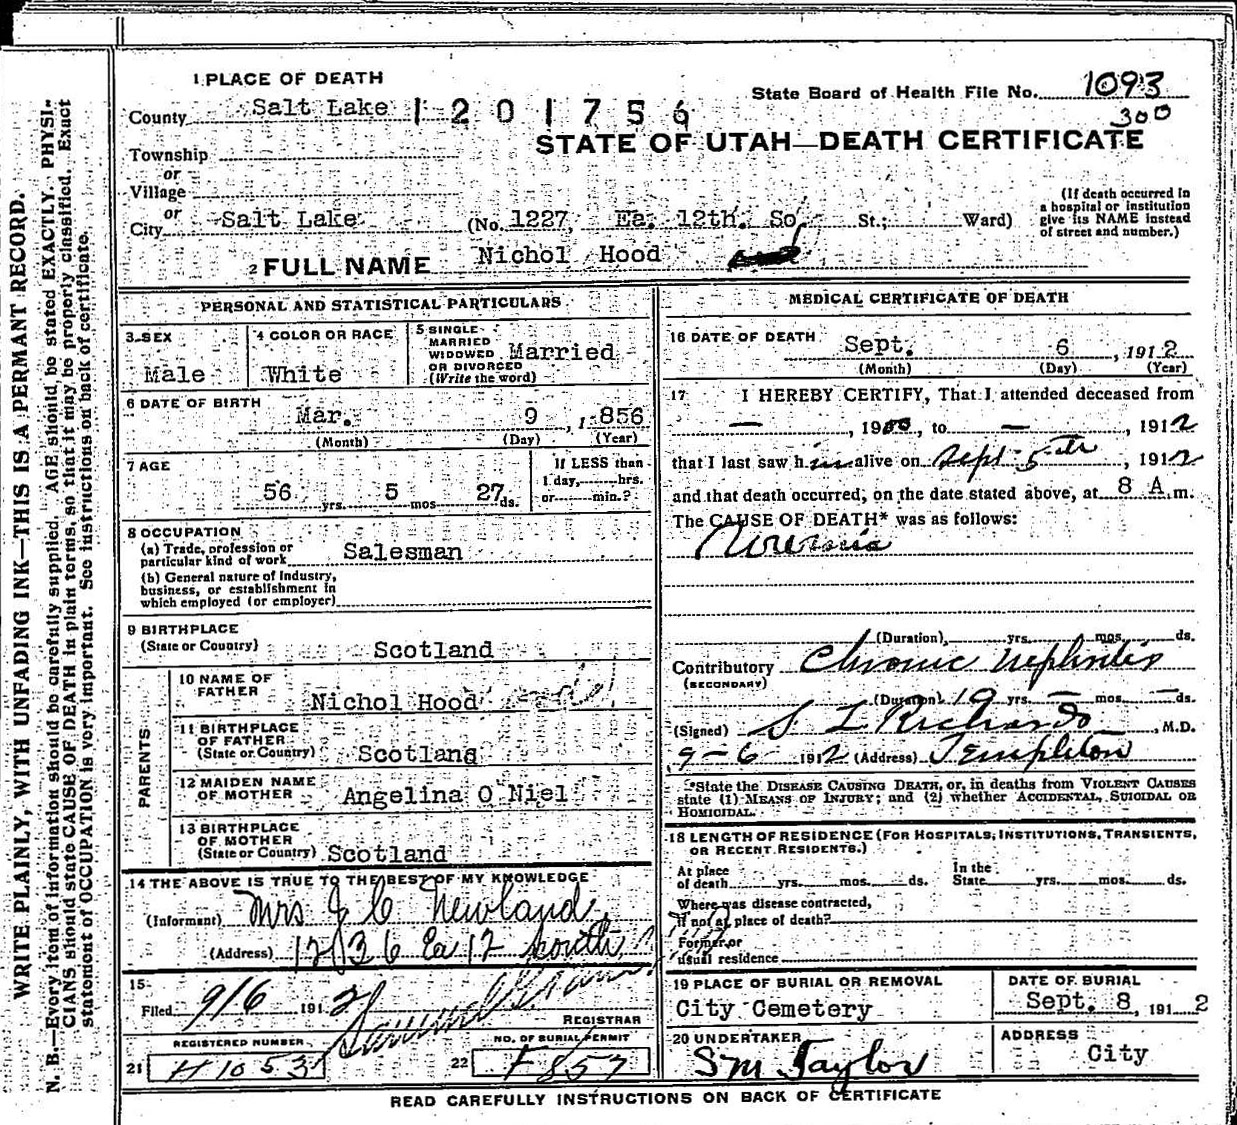 WRITE PLAINLY, WITH UNFADING INK—THIS IS A PERMANT RECORD.
N. B.—Every item of information should be carefully supplied. AGE should be stated EXACTLY. PHYSI-
CIANS should state CAUSE OF DEATH in plain terms, so that it may be properly classified. Exact
statement of OCCUPATION is very important. See instructions on back of certificate.
1 PLACE OF DEATH
County Salt Lake 1201756
State Board of Health File No. 1093
300
STATE OF UTAH—DEATH CERTIFICATE
Township
or
Village
or
City Salt Lake (No. 1227, Ea. 12th. So St.; Ward)
(If death occurred in
a hospital or institution
give its NAME instead
of street and number.)
2 FULL NAME Nichol Hood
PERSONAL AND STATISTICAL PARTICULARS
3 SEX Male
4 COLOR OR RACE White
5 SINGLE
MARRIED
WIDOWED
OR DIVORCED
(Write the word) Married
6 DATE OF BIRTH
Mar. 9, 1856
(Month) (Day) (Year)
7 AGE
56 yrs. 5 mos 27 ds.
If LESS than
1 day, hrs.
or min.?
8 OCCUPATION
(a) Trade, profession or
particular kind of work Salesman
(b) General nature of Industry,
business, or establishment in
which employed (or employer)
9 BIRTHPLACE
(State or Country) Scotland
PARENTS
10 NAME OF
FATHER Nichol Hood
11 BIRTHPLACE
OF FATHER
(State or Country) Scotland
12 MAIDEN NAME
OF MOTHER Angelina O'Niel
13 BIRTHPLACE
OF MOTHER
(State or Country) Scotland
14 THE ABOVE IS TRUE TO THE BEST OF MY KNOWLEDGE
(Informant) Mrs J C Newland
(Address) 1236 Ea 12 South
15
Filed 9/6 1912
REGISTRAR
REGISTERED NUMBER
21 H 1053
NO. OF BURIAL PERMIT
22 F857
MEDICAL CERTIFICATE OF DEATH
16 DATE OF DEATH
Sept. 6, 1912
(Month) (Day) (Year)
17 I HEREBY CERTIFY, That I attended deceased from
—, 19, to —, 1912
that I last saw him alive on Sept 5th, 1912
and that death occurred, on the date stated above, at 8 A.m.
The CAUSE OF DEATH* was as follows:
Uremia
(Duration), yrs. mos. ds.
Contributory Chronic Nephritis
(SECONDARY)
(Duration) 10 yrs. — mos. — ds.
(Signed) S L Richards, M.D.
9-6 1912 (Address) Templeton
*State the DISEASE CAUSING DEATH, or, in deaths from VIOLENT CAUSES
state (1) MEANS OF INJURY; and (2) whether ACCIDENTAL, SUICIDAL OR
HOMICIDAL.
18 LENGTH OF RESIDENCE (FOR HOSPITALS, INSTITUTIONS, TRANSIENTS,
OR RECENT RESIDENTS.)
At place
of death yrs. mos. ds.
In the
State yrs. mos. ds.
Where was disease contracted,
If not at place of death?
Former or
usual residence
19 PLACE OF BURIAL OR REMOVAL
City Cemetery
DATE OF BURIAL
Sept. 8, 1912
20 UNDERTAKER
S M Taylor
ADDRESS
City
READ CAREFULLY INSTRUCTIONS ON BACK OF CERTIFICATE